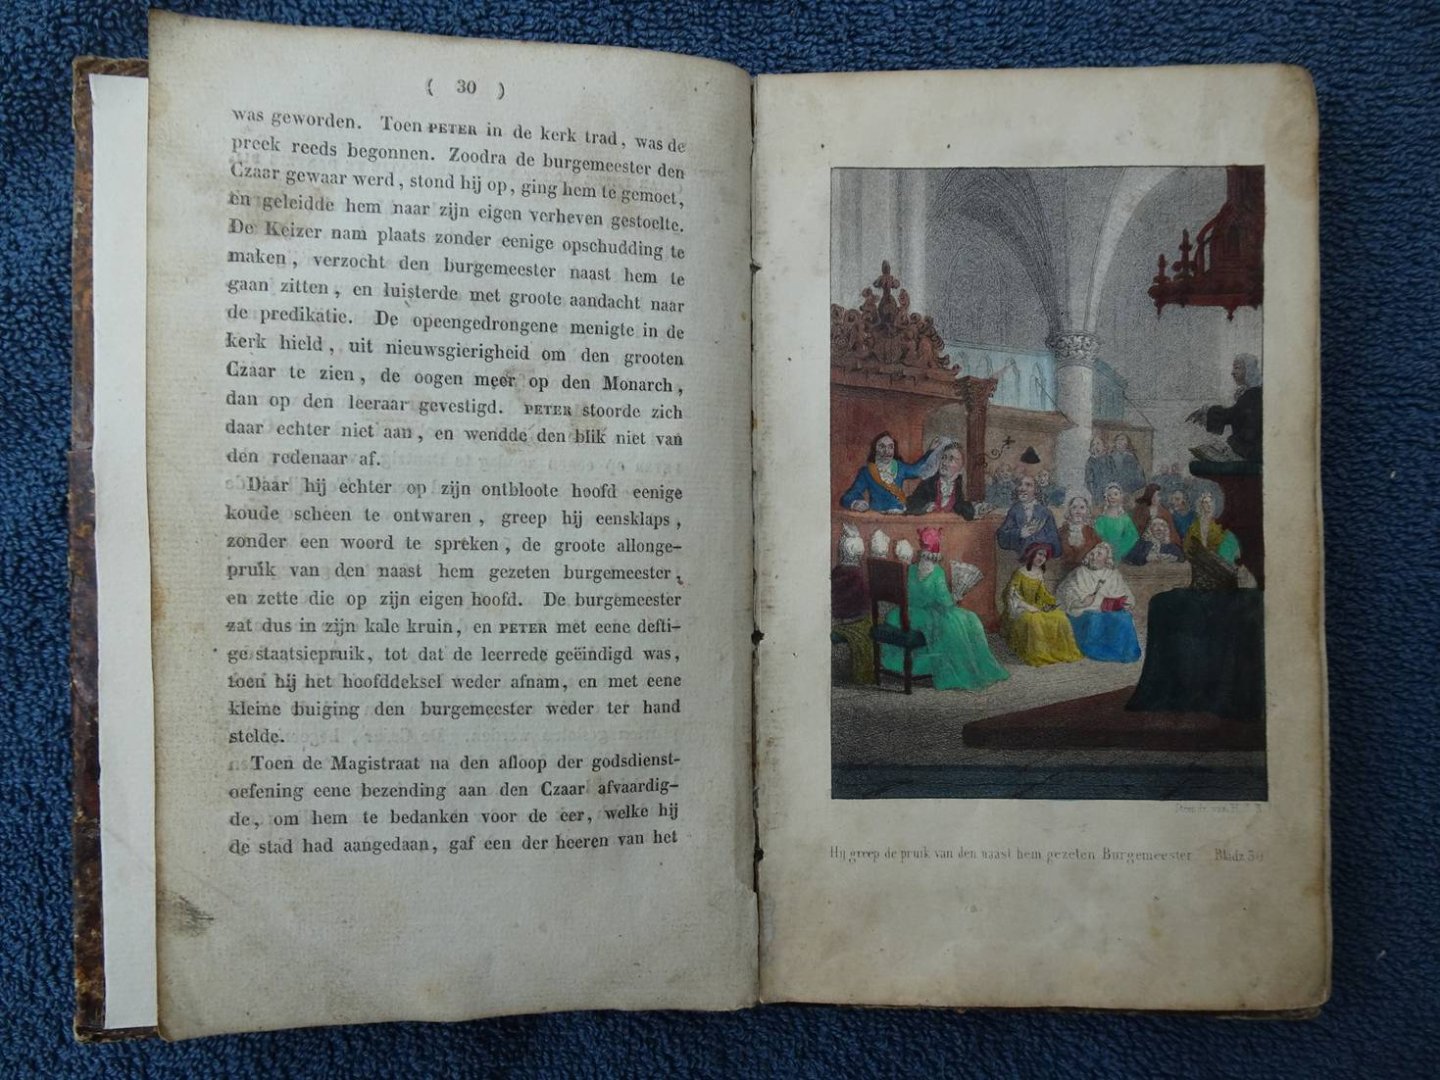 ( 30 )
was geworden. Toen PETER in de kerk trad, was de
preek reeds begonnen. Zoodra de burgemeester den
Czaar gewaar werd, stond hij op, ging hem te gemoet,
en geleidde hem naar zijn eigen verheven gestoelte.
De Keizer nam plaats zonder eenige opschudding te
maken, verzocht den burgemeester naast hem te
gaan zitten, en luisterde met groote aandacht naar
de predikatie. De opeengedrongene menigte in de
kerk hield, uit nieuwsgierigheid om den grooten
Czaar te zien, de oogen meer op den Monarch,
dan op den leeraar gevestigd. PETER stoorde zich
daar echter niet aan, en wendde den blik niet van
den redenaar af.
Daar hij echter op zijn ontbloote hoofd eenige
koude scheen te ontwaren, greep hij eensklaps,
zonder een woord te spreken, de groote allonge-
pruik van den naast hem gezeten burgemeester,
en zette die op zijn eigen hoofd. De burgemeester
zat dus in zijn kale kruin, en PETER met eene defti-
ge staatsiepruik, tot dat de leerrede geëindigd was,
toen hij het hoofddeksel weder afnam, en met eene
kleine buiging den burgemeester weder ter hand
stelde.
Toen de Magistraat na den afloop der godsdienst-
oefening eene bezending aan den Czaar afvaardig-
de, om hem te bedanken voor de eer, welke hij
de stad had aangedaan, gaf een der heeren van het
Hij greep de pruik van den naast hem gezeten Burgemeester Bladz 30